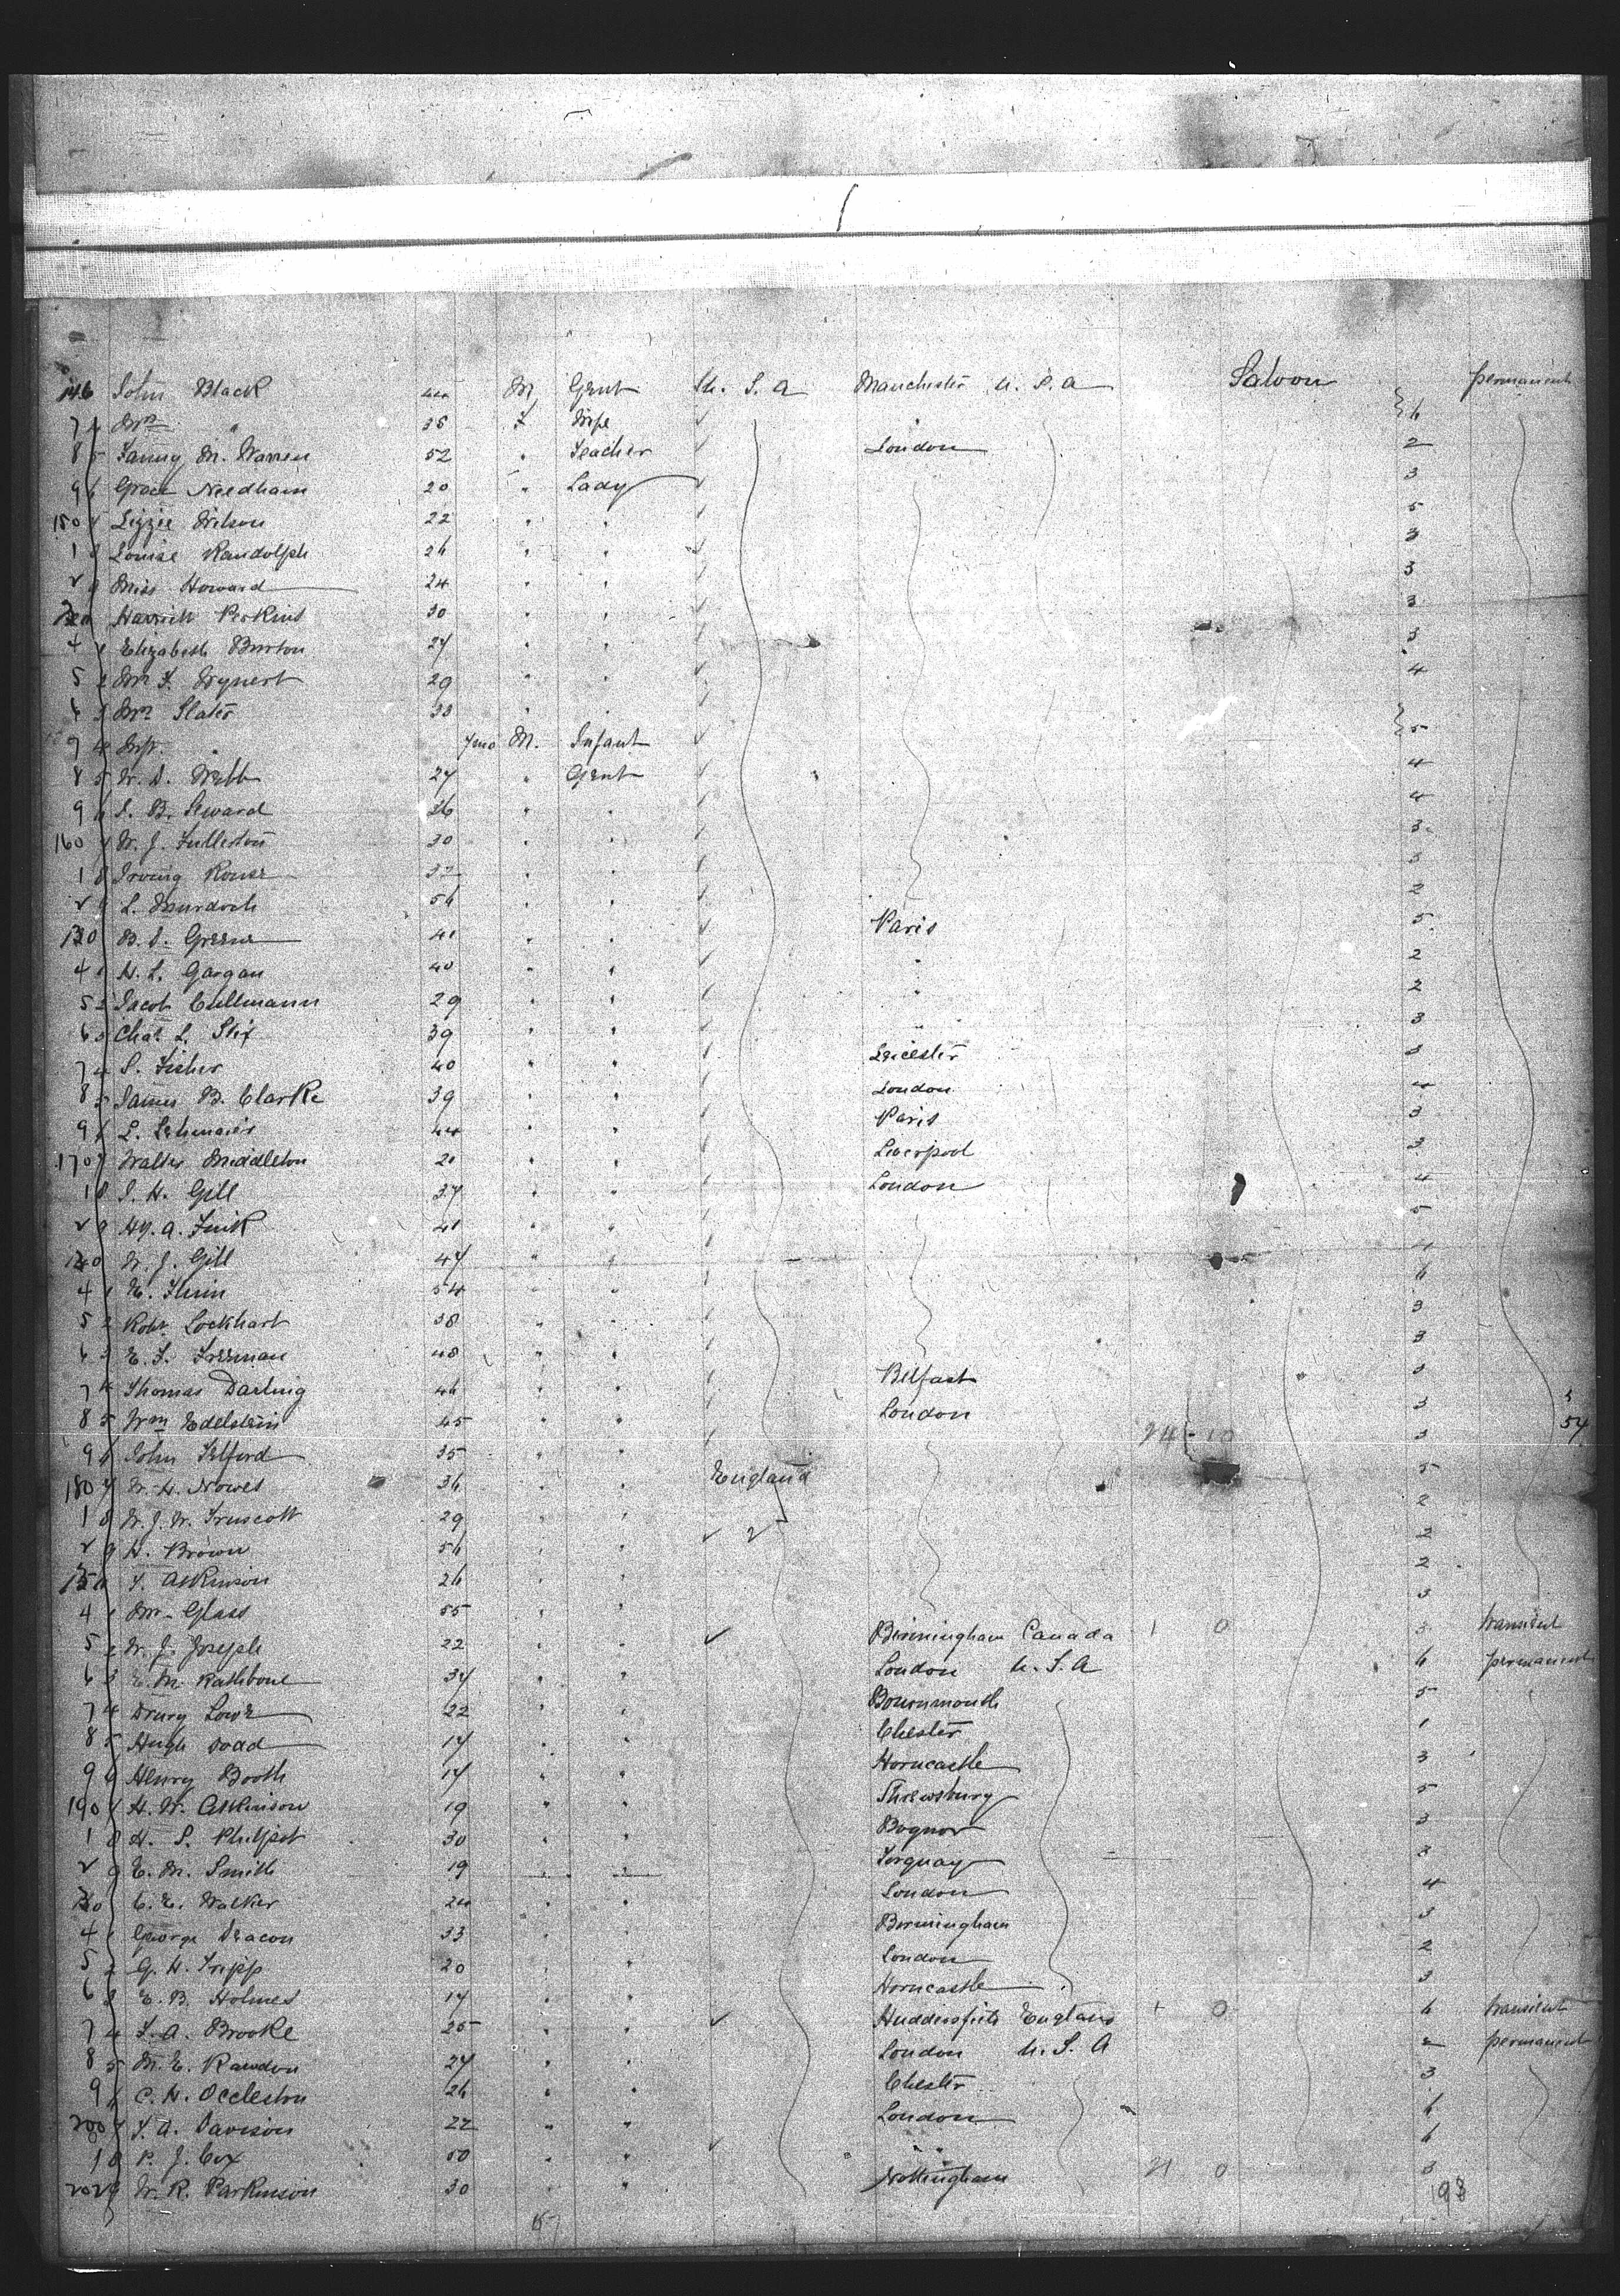 146 John Black 44 M Gent U. S. A Manchester U. S. A Saloon permanent
7 Mrs " 38 F Wife 6
8 Fanny M. Warren 52 " Teacher London 2
9 Grace Needham 20 " Lady 3
150 Lizzie Wilson 22 " " 5
1 Louise Randolph 26 " " 3
2 Miss Howard 24 " " 3
Perkins 30 " " 3
4 Elizabeth Burton 27 " " 3
5 29 " " 4
6 Mrs Slater 33 " "
7 7 mo M. Infant 5
8 W. D. Webb 27 " Gent 4
9 S. B. Seward 36 " " 4
160 W. J. Fullerton 30 " " 3
1 Irving Rouse " " 3
2 L. Murdoch 56 " " 2
B. S. Greene 41 " " Paris 5
4 H. L. Gargan 40 " " " 2
5 Jacob Cullmann 29 " " " 2
6 Chas L. Stix 39 " " " 3
7 S. Fisher 40 " " Leicester 3
8 James B. Clarke 39 " " London
9 L. Lehmaier 44 " " Paris 3
170 Walter Middleton 21 " " Liverpool 3
1 S. H. Gill 37 " " London 4
2 Hy. A. Fink 41 " " 5
W. J. Gill 47 " "
4 54 " " 6
5 Robt Lockhart 38 " " 3
6 E. F. Freeman 48 " " 3
7 Thomas Darling 46 " " Belfast 3
8 Wm Edelstein 45 " " London 3 54
9 John Telford 35 " " 24 - 10 3
180 W. H. Nowes 36 " " England 5
1 W. J. W. Truscott 29 " " 2
2 H. Brown 56 " " 2
Atkinson 26 " " 2
4 Mr Glass 55 " " 3
5 W. J. Joseph 22 " " Birmingham Canada 1 0 3 transient
6 E. M. Rathbone 37 " " London U. S. A 6 permanent
7 Drury Lowe 22 " " Bournmouth 5
8 Hugh Dodd 17 " " Chester 1
9 Henry Booth 17 " " Horncastle 3
190 H. W. Atkinson 19 " " Shrewsburg 5
1 H. S. Philpot 30 " " Bognor 3
2 E. M. Smith 19 " " Torquay 3
C. E. Walker 24 " " London 4
4 George Deacon 33 " " Birmingham 3
5 G. H. Tripp 20 " " London 2
6 E. B. Holmes 17 " " Horncastle 3
7 Brooke 25 " " Huddersfield England 1 0 6 transient
8 M. E. Rawdon 27 " " London U. S. A 2 permanent
9 C. H. Occleston 26 " " Chester 3
200 Davison 22 " " London 6
1 P. J. Cox 50 " " " " 6
202 W. R. Parkinson 30 " " Nottingham 21 0 3
57 193